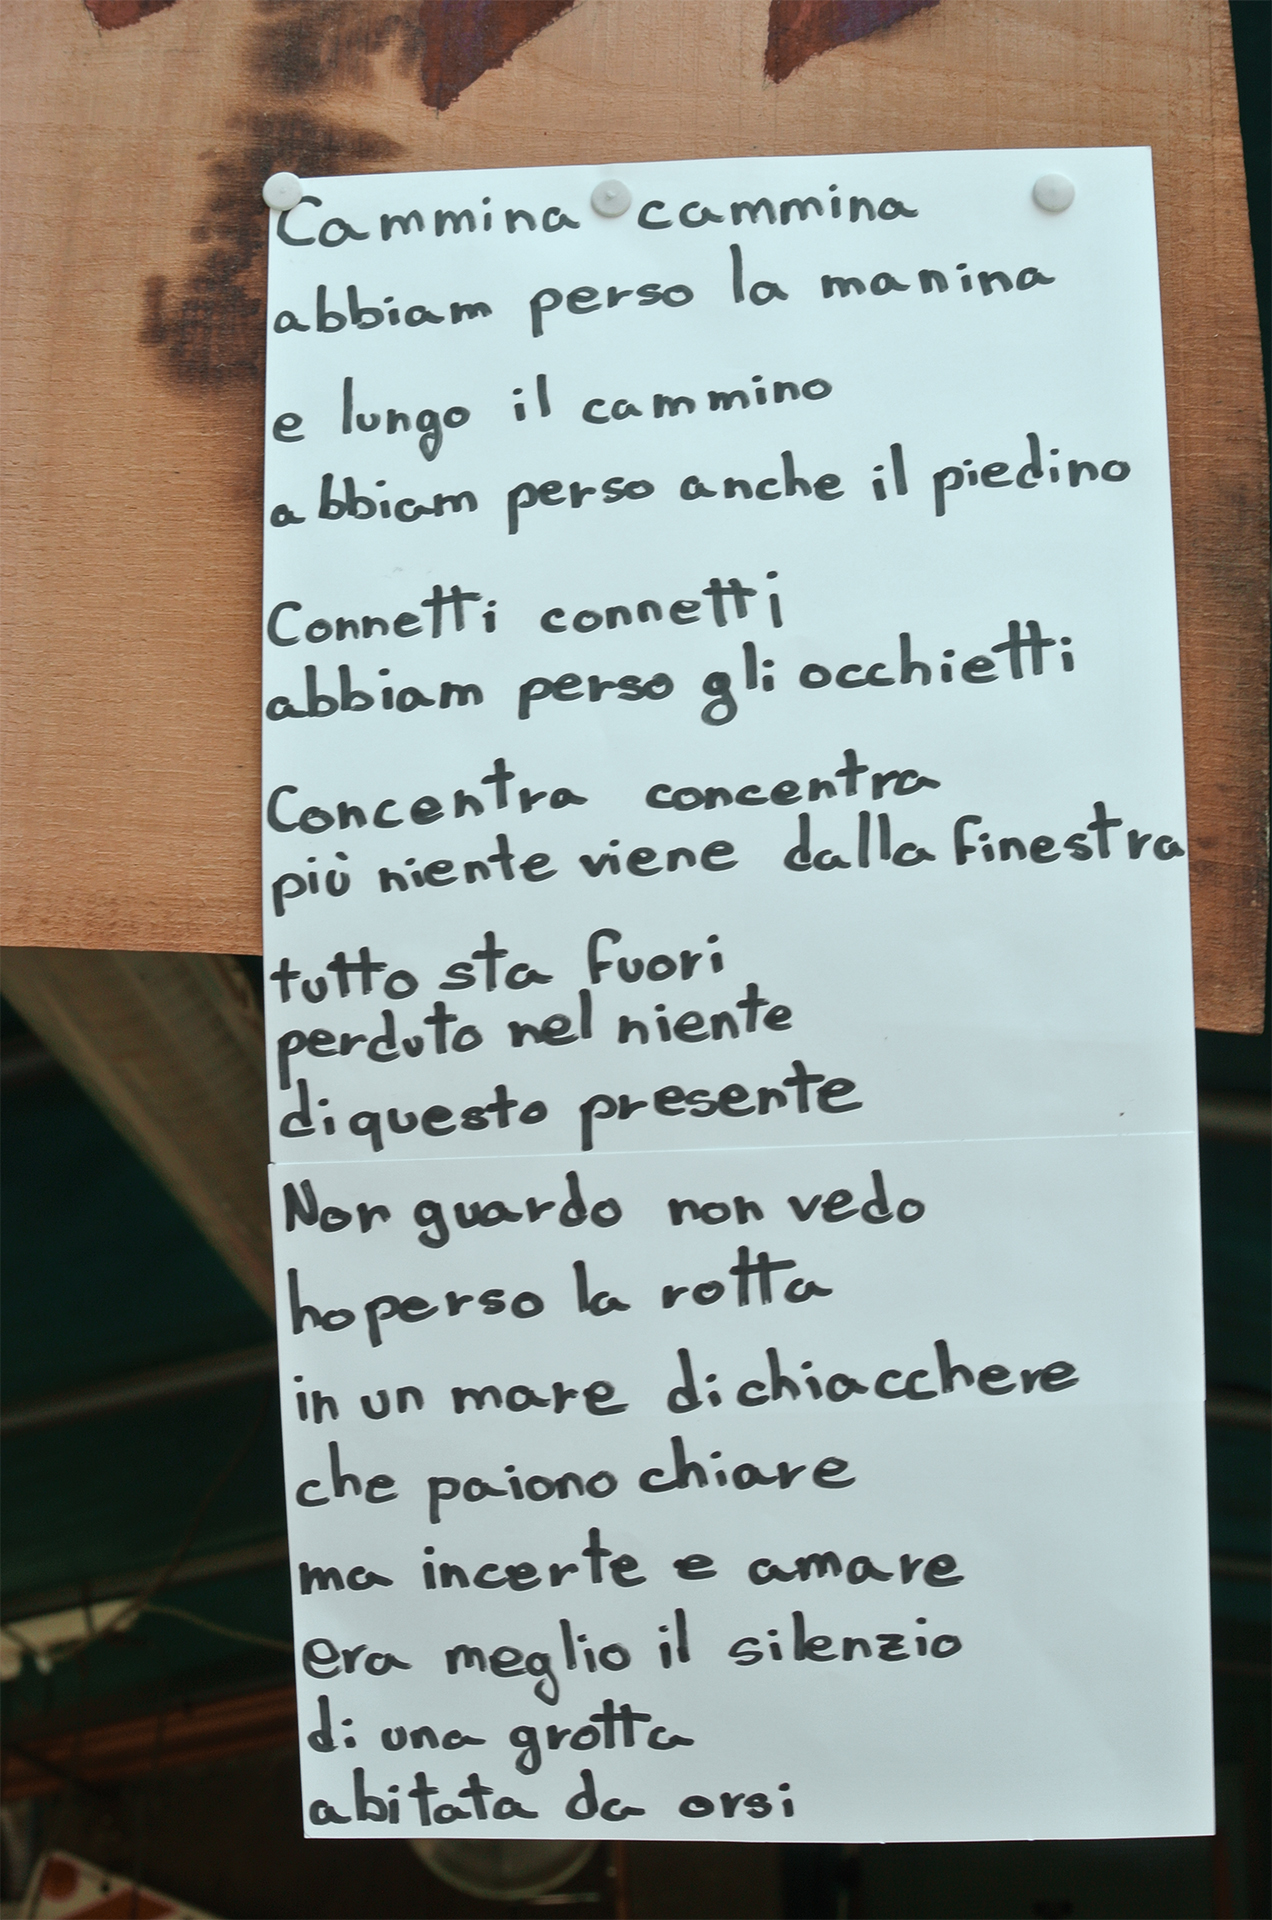 Cammina cammina
abbiam perso la manina
e lungo il cammino
abbiam perso anche il piedino
Connetti connetti
abbiam perso gli occhietti
Concentra concentra
più niente viene dalla finestra
tutto sta fuori
perduto nel niente
di questo presente
Non guardo non vedo
ho perso la rotta
in un mare di chiacchere
che paiono chiare
ma incerte e amare
era meglio il silenzio
di una grotta
abitata da orsi